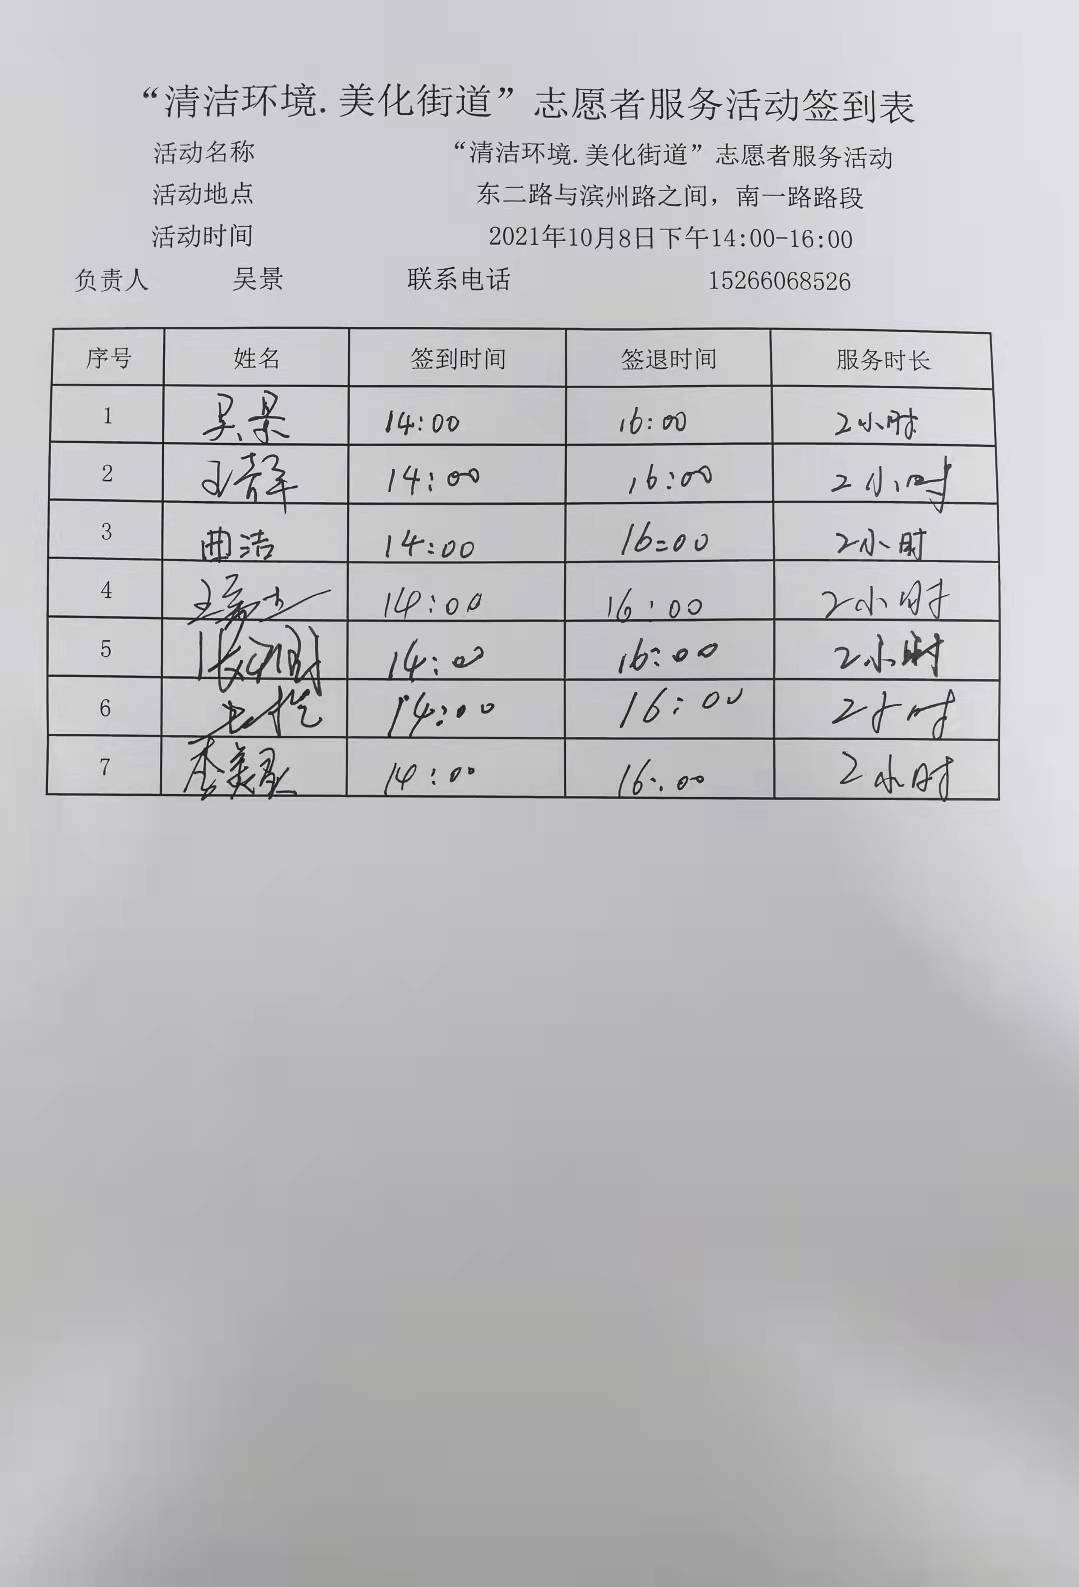 “清洁环境.美化街道”志愿者服务活动签到表
活动名称 “清洁环境.美化街道”志愿者服务活动
活动地点 东二路与滨州路之间，南一路路段
活动时间 2021年10月8日下午14:00-16:00
负责人 吴景 联系电话 15266068526
序号 姓名 签到时间 签退时间 服务时长
1 吴景 14:00 16:00 2小时
2 14:00 16:00 2小时
3 曲洁 14:00 16:00 2小时
4 14:00 16:00 2小时
5 14:00 16:00 2小时
6 14:00 16:00 2小时
7 14:00 16:00 2小时